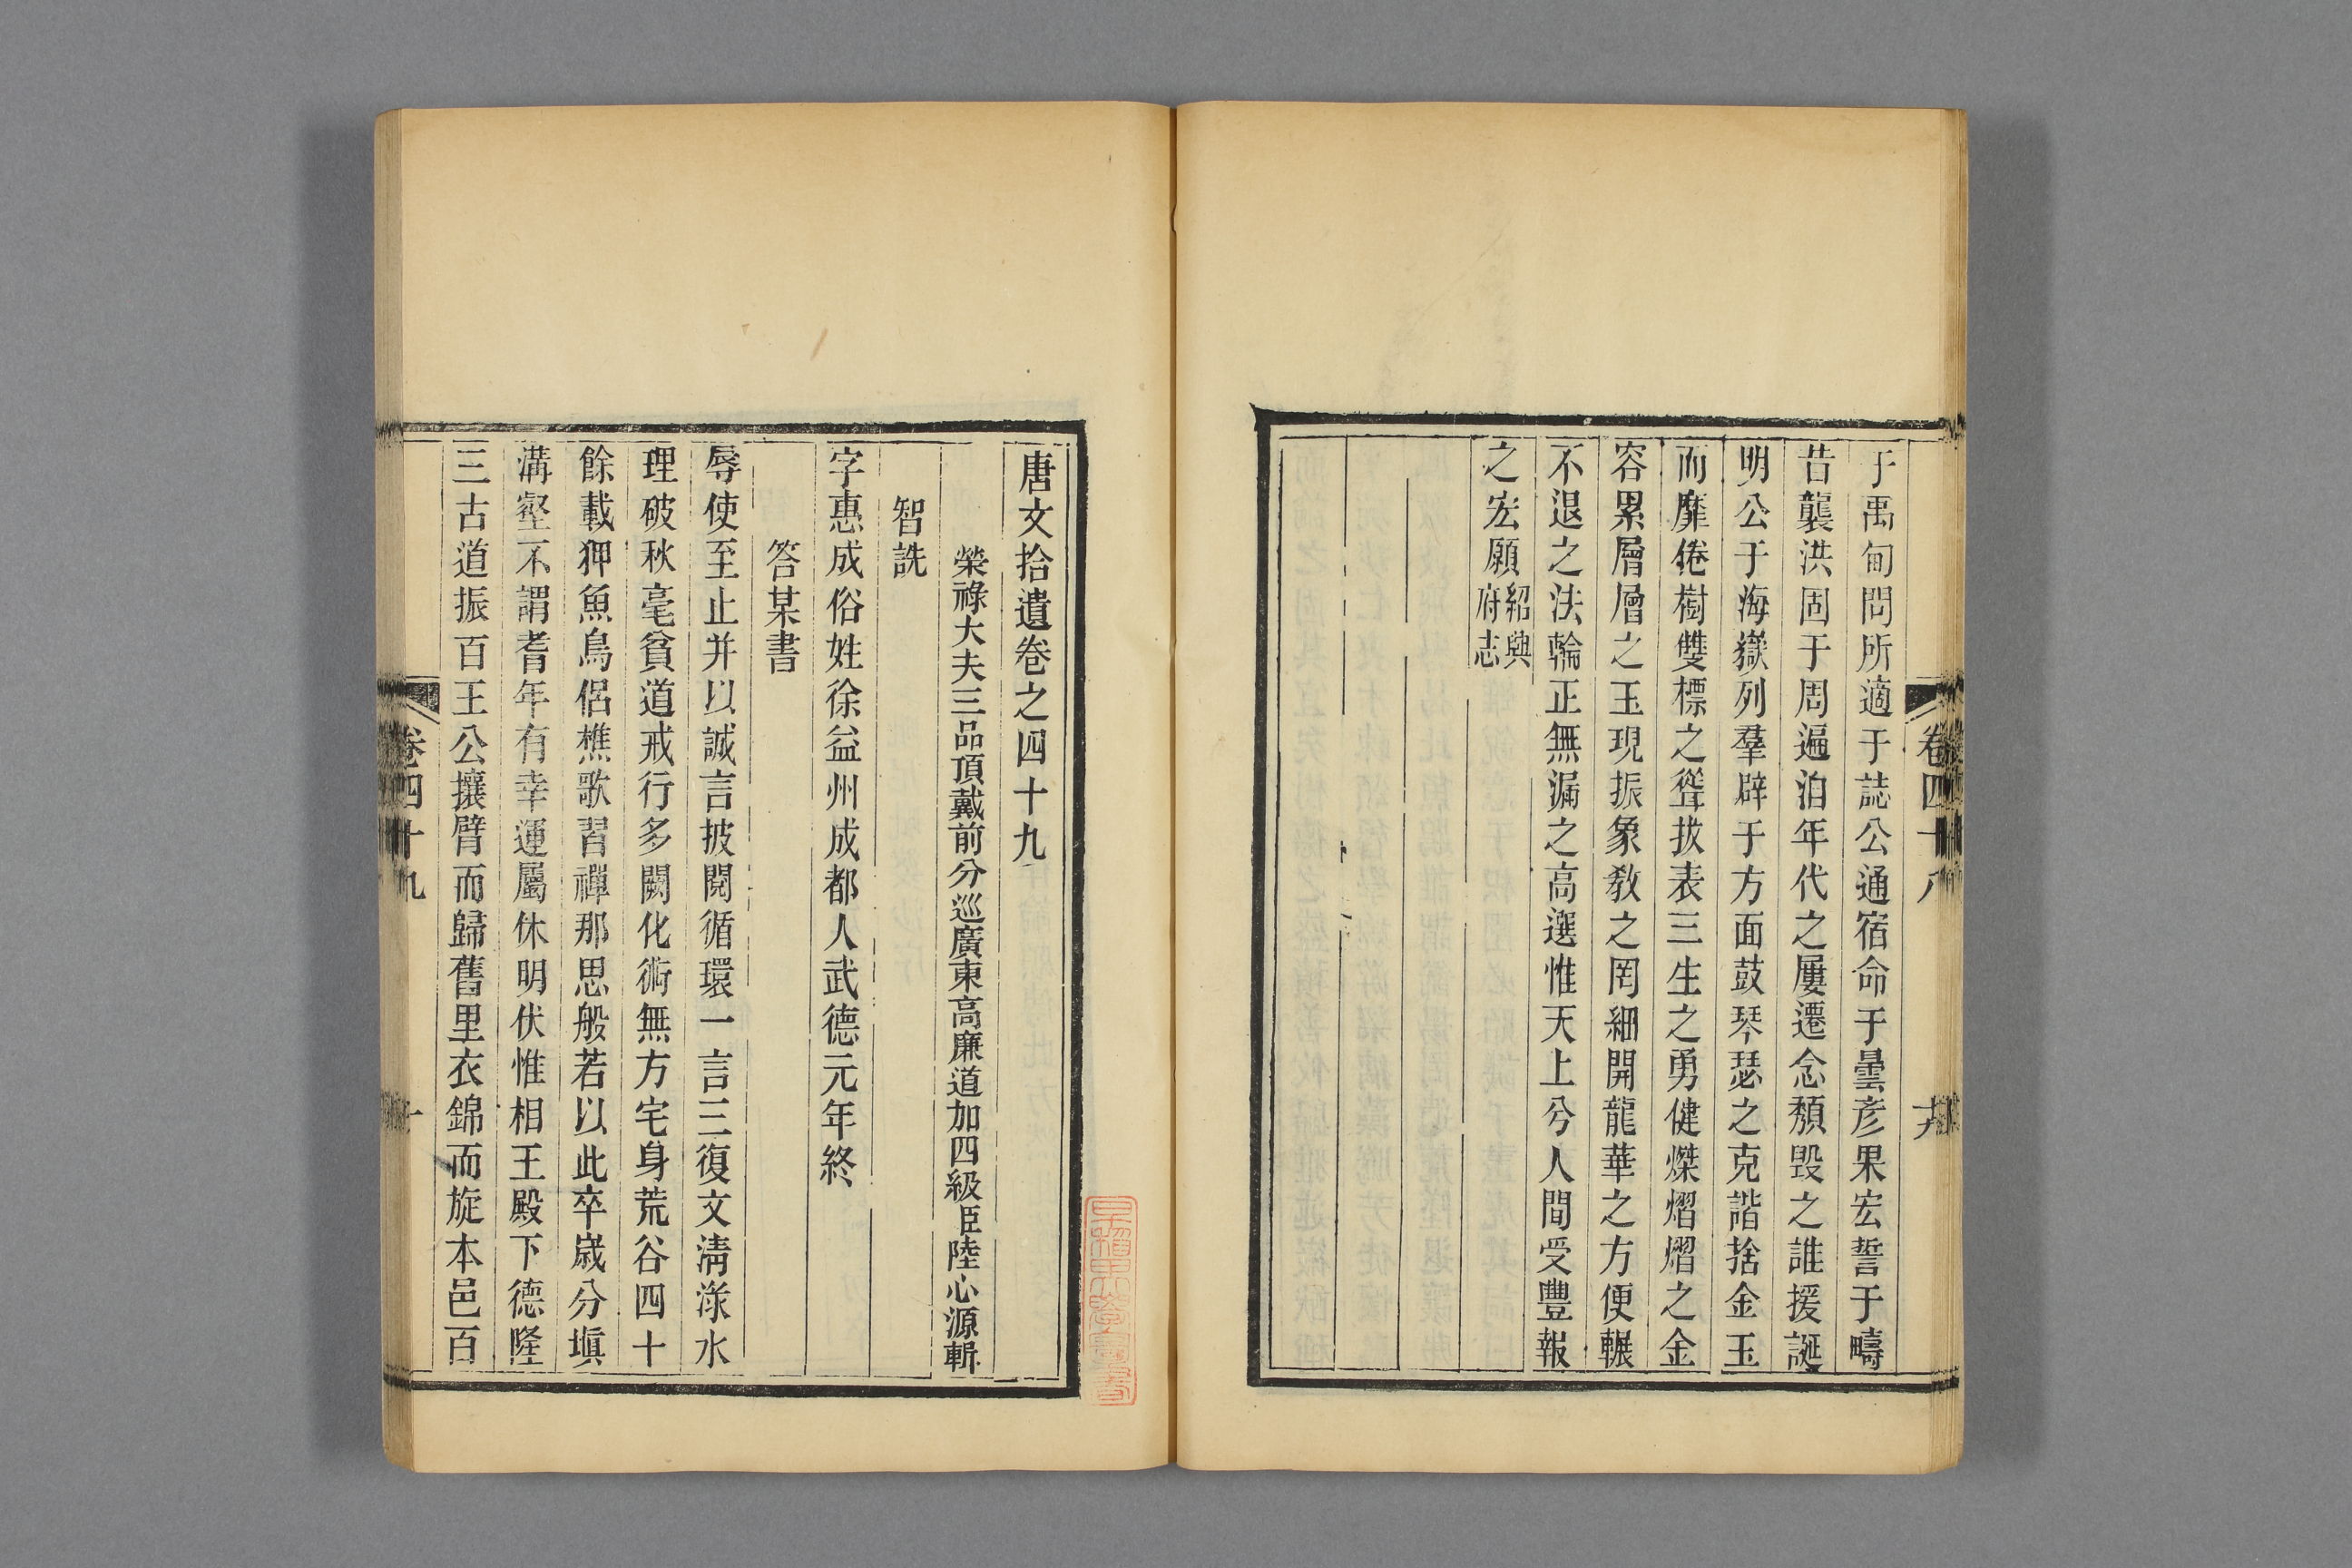 于禹甸問所適于誌公通宿命于曇彥果宏誓于疇
昔襲洪固于周遍洎年代之屢遷念頹毀之誰援誕
明公于海嶽列羣辟于方面鼓琴瑟之克諧捨金玉
而靡倦樹雙標之聳拔表三生之勇健爃熠熠之金
容累層層之玉現振象敎之罔細開龍華之方便輾
不退之法輪正無漏之高選惟天上兮人間受豐報
之宏願紹興府志
卷四十八
唐文拾遺卷之四十九
榮祿大夫三品頂戴前分巡廣東高廉道加四級臣陸心源輯
智詵
字惠成俗姓徐益州成都人武德元年終
答某書
辱使至止并以誠言披閱循環一言三復文淸淥水
理破秋毫貧道戒行多闕化術無方宅身荒谷四十
餘載狎魚鳥侶樵歌習禪那思般若以此卒嵗分塡
溝壑不謂耆年有幸運屬休明伏惟相王殿下德隆
三古道振百王公攘臂而歸舊里衣錦而旋本邑百
卷四十九
一